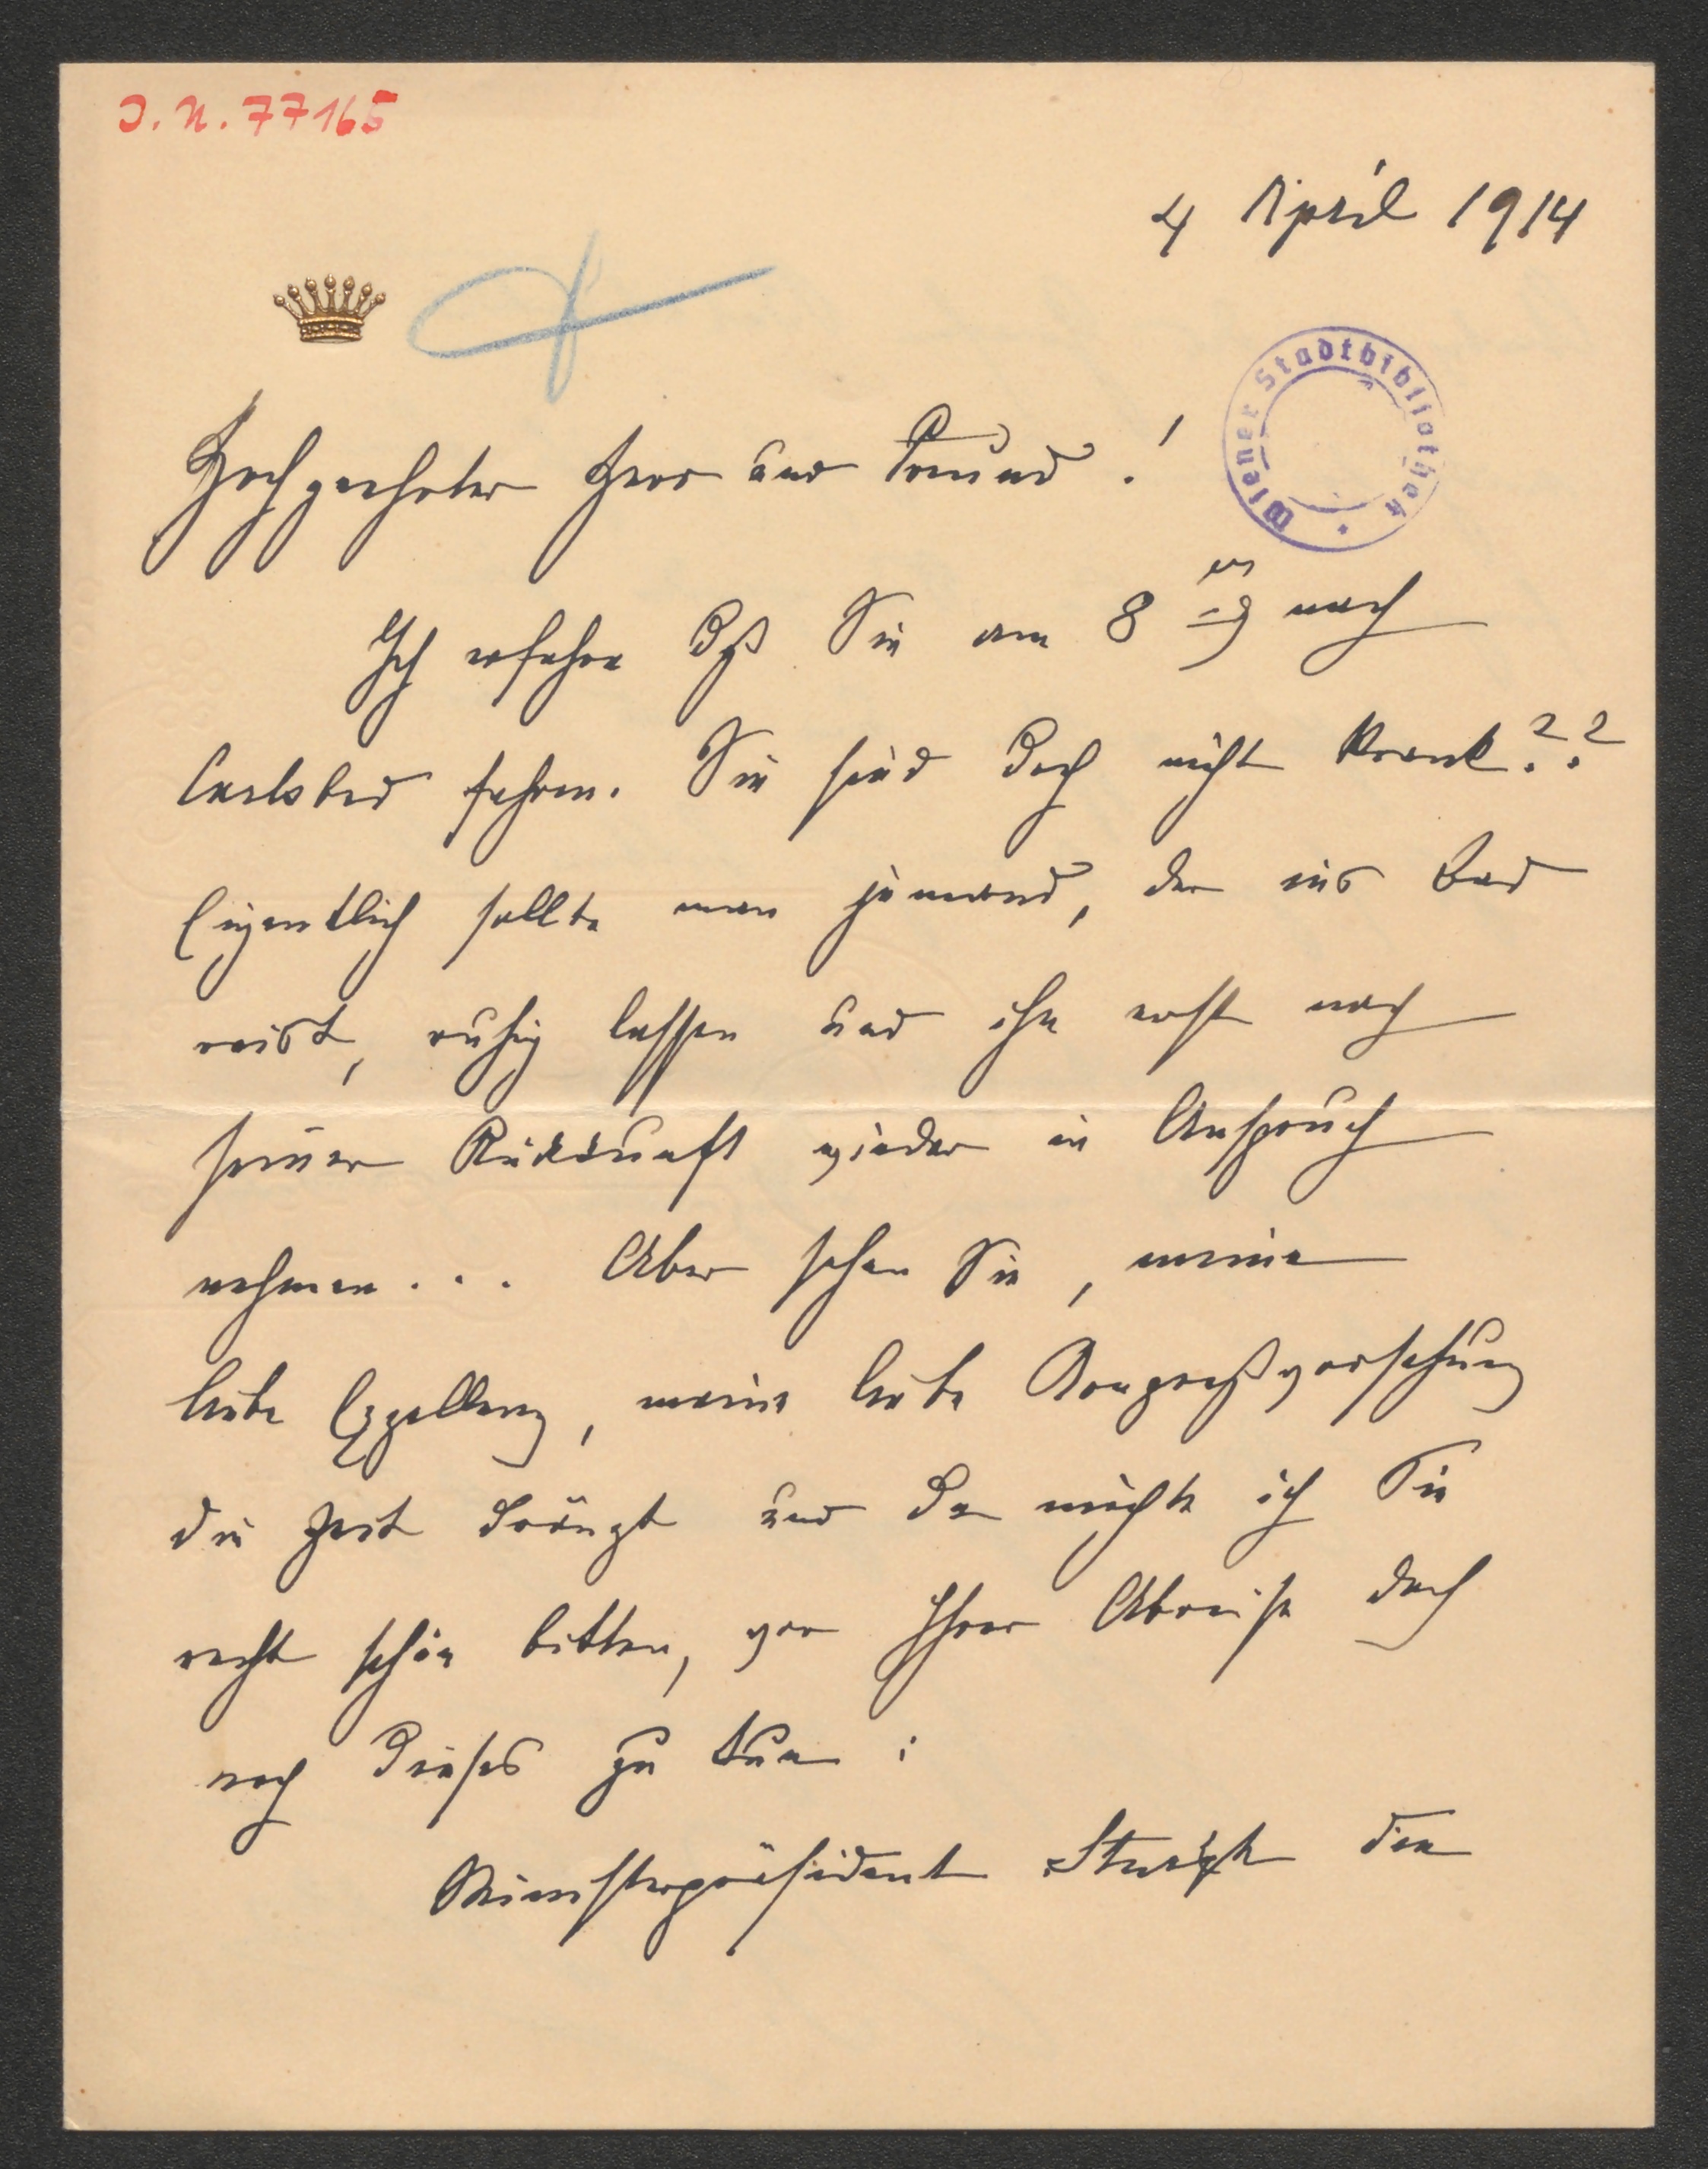 J. N. 77165
4 April 1914
Wiener Stadtbibliothek
Hochgeehrter Herr und Freund!
Ich erfahre daß Sie am 8 nach
Carlsbad fahren. Sie sind doch nicht krank??
Eigentlich sollte man jemand, der ins Bad
reist, ruhig lassen und ihn erst nach
seiner Rückkunft wieder in Anspruch
nehmen... Aber sehen Sie, meine
liebe Exzellenz, meine liebe Kongreßvorsehung
die Zeit drängt und da möchte ich Sie
recht schön bitten, vor Ihrer Abreise doch
noch dieses zu tun:
Ministerpräsident Sturgk den